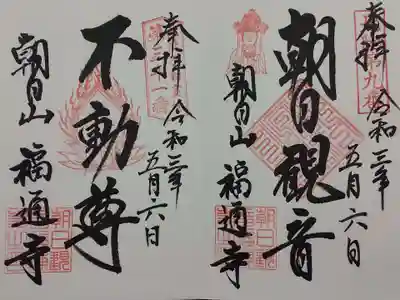 奉拝
令和三年
五月六日
朝日観音
朝日山 福通寺
奉拝
令和三年
五月六日
不動尊
朝日山 福通寺